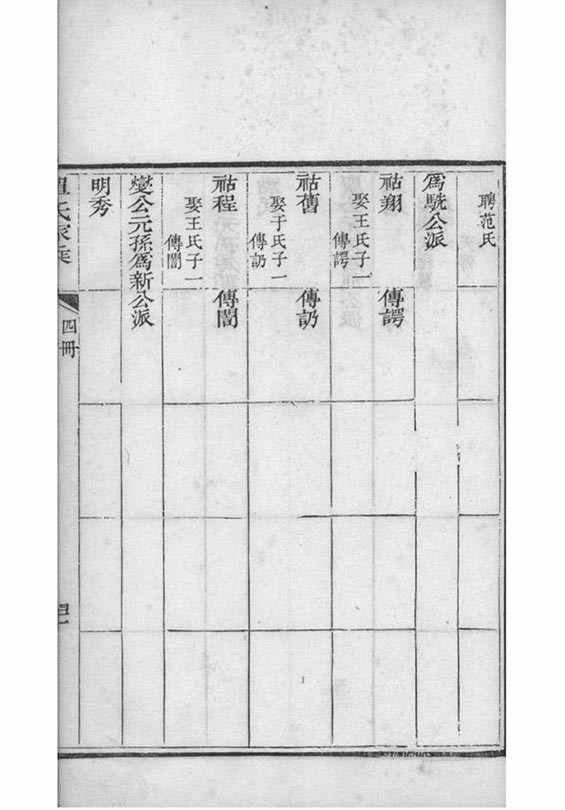 聘范氏
爲駫公派
祜翔　傳諤
娶王氏子一
傳諤
祜舊　傳訒
娶于氏子一
傳訒
祜程　傳誾
娶王氏子一
傳誾
燮公元孫爲新公派
明秀
氏家乘
四冊